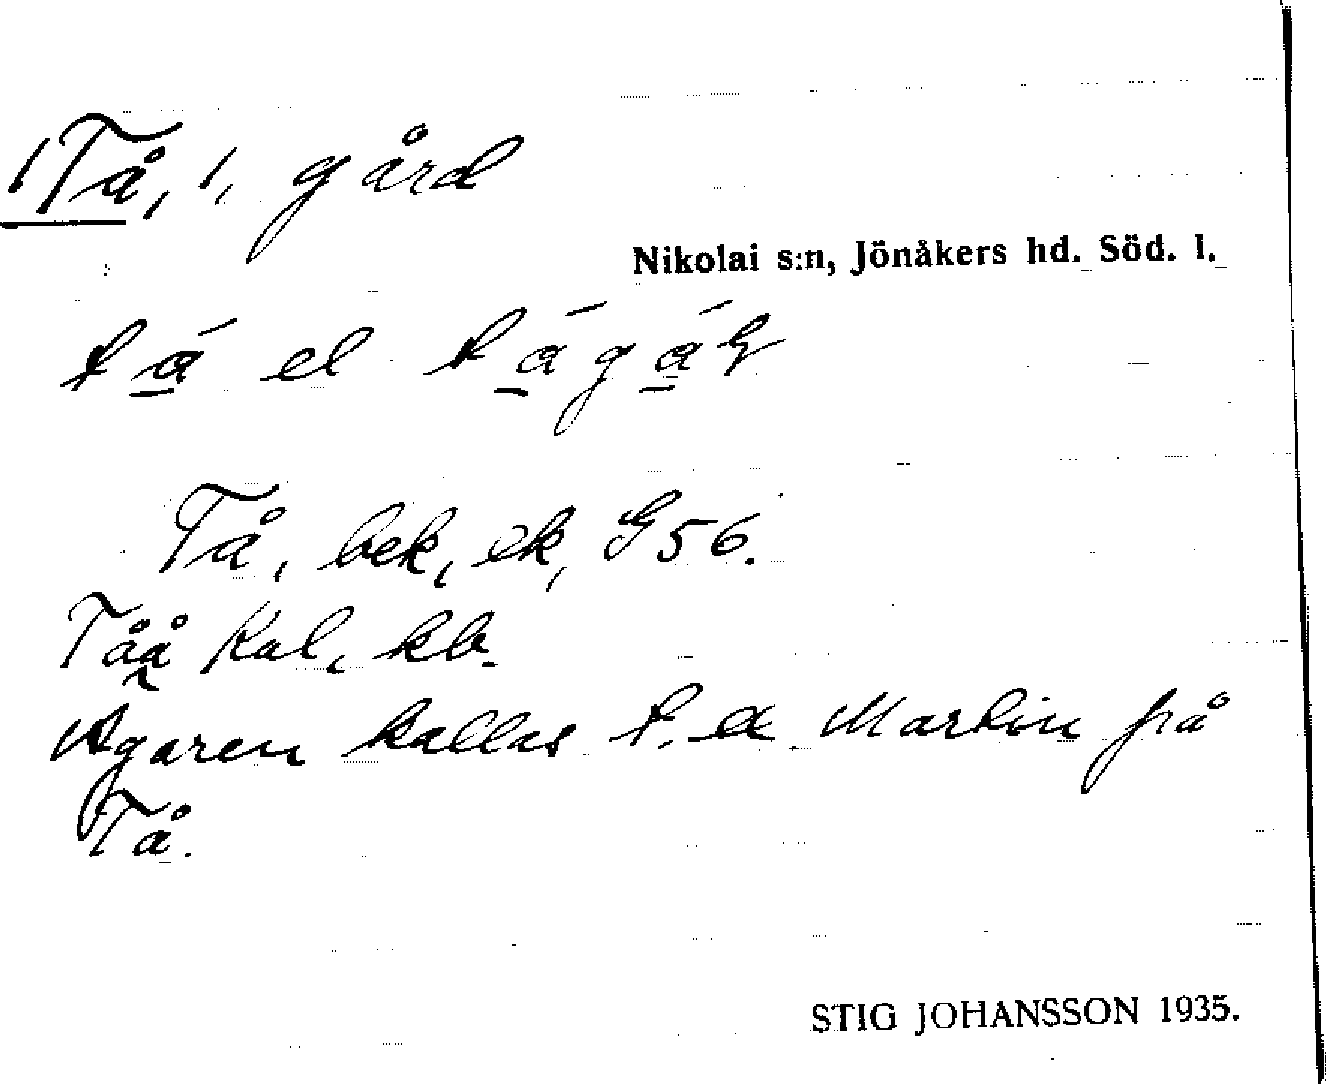 Tå, 1, gård
Nikolai s:n, Jönåkers hd. Söd. l.
tá el
Tå, bek, ek, G56.
Tåå Kal, kb.
Ägaren kallas t. ex. Martin frå
Tå.
STIG JOHANSSON 1935.